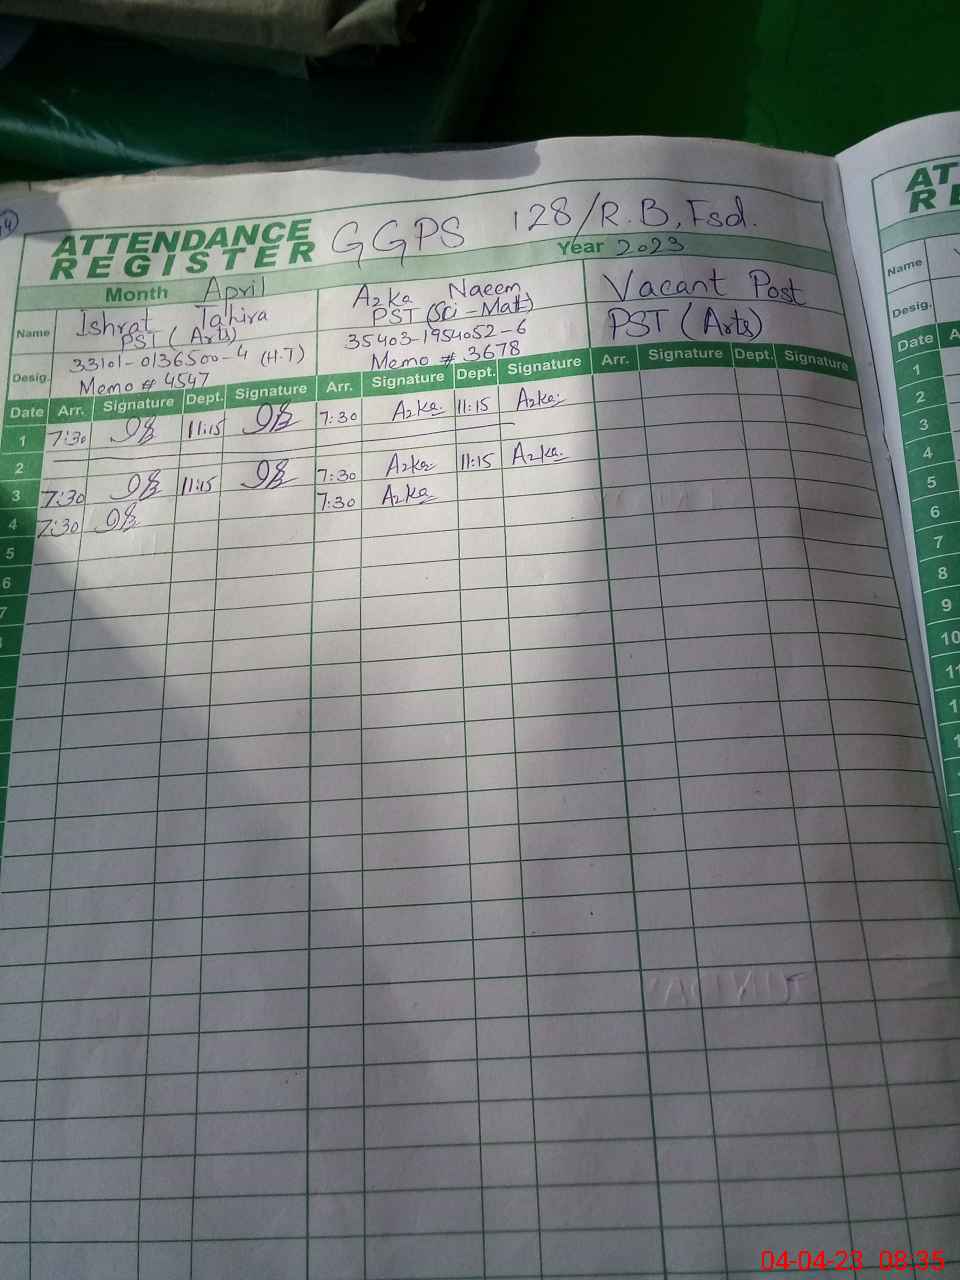 ATTENDANCE REGISTER GGPS 128/R.B, Fsd.
Month April Year 2023
Name Ishrat Tahira Azka Naeem Vacant Post
PST (Arts) PST (Sci-Math) PST (Arts)
Desig. 33101-0136500-4 (H-T) 35403-1954052-6
Memo # 4547 Memo # 3678
Date Arr. Signature Dept. Signature Arr. Signature Dept. Signature Arr. Signature Dept. Signature
1 7:30 11:15 7:30 Azka 11:15 Azka
2
3 7:30 11:15 7:30 Azka 11:15 Azka
4 7:30 7:30 Azka
5
6
7
AT
RE
Name
Desig.
Date A
1
2
3
4
5
6
7
8
9
10
11
04-04-23 08:35